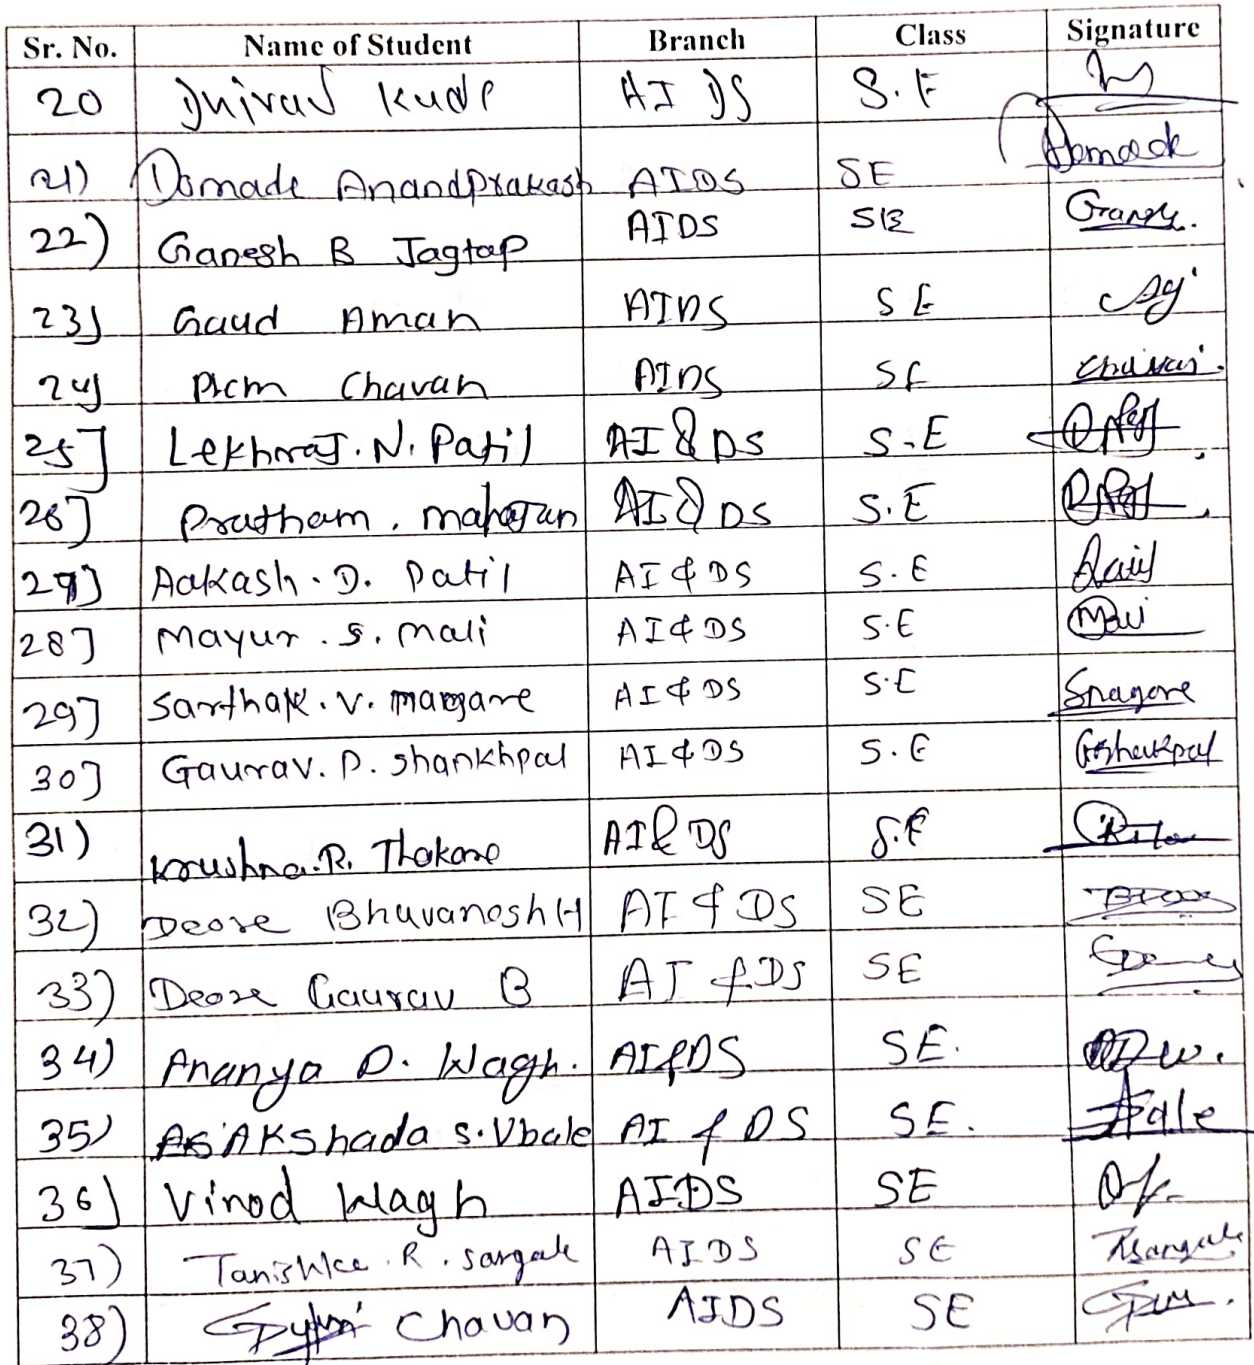 Sr. No. Name of Student Branch Class Signature
20 Dhiraj Kude AI DS S.E
21) Domade Anandprakash AIDS SE
22) Ganesh B Jagtap AIDS SE
23] Gaud Aman AIDS SE
24] Prem Chavan AIDS SE chavan.
25] Lekhraj. N. Patil AI & DS S.E
26] Pratham. mahajan AI & DS S.E
27] Aakash. D. Patil AI & DS S.E
28] Mayur. S. Mali AI & DS S.E Mali
29] Sarthak. V. magare AI & DS S.E Smagare
30] Gaurav. P. Shankhpal AI & DS S.E
31) Krushna. R. Thakare AI & DS S.E
32) Deore Bhuvanesh H AI & DS SE
33) Deore Gaurav B AI & DS SE
34) Ananya D. Wagh. AI&DS SE.
35) Akshada S. Ubale AI & DS SE.
36] Vinod Wagh AIDS SE
37) Tanishka. R. Sangale AIDS SE Tsangale
38) Chavan AIDS SE